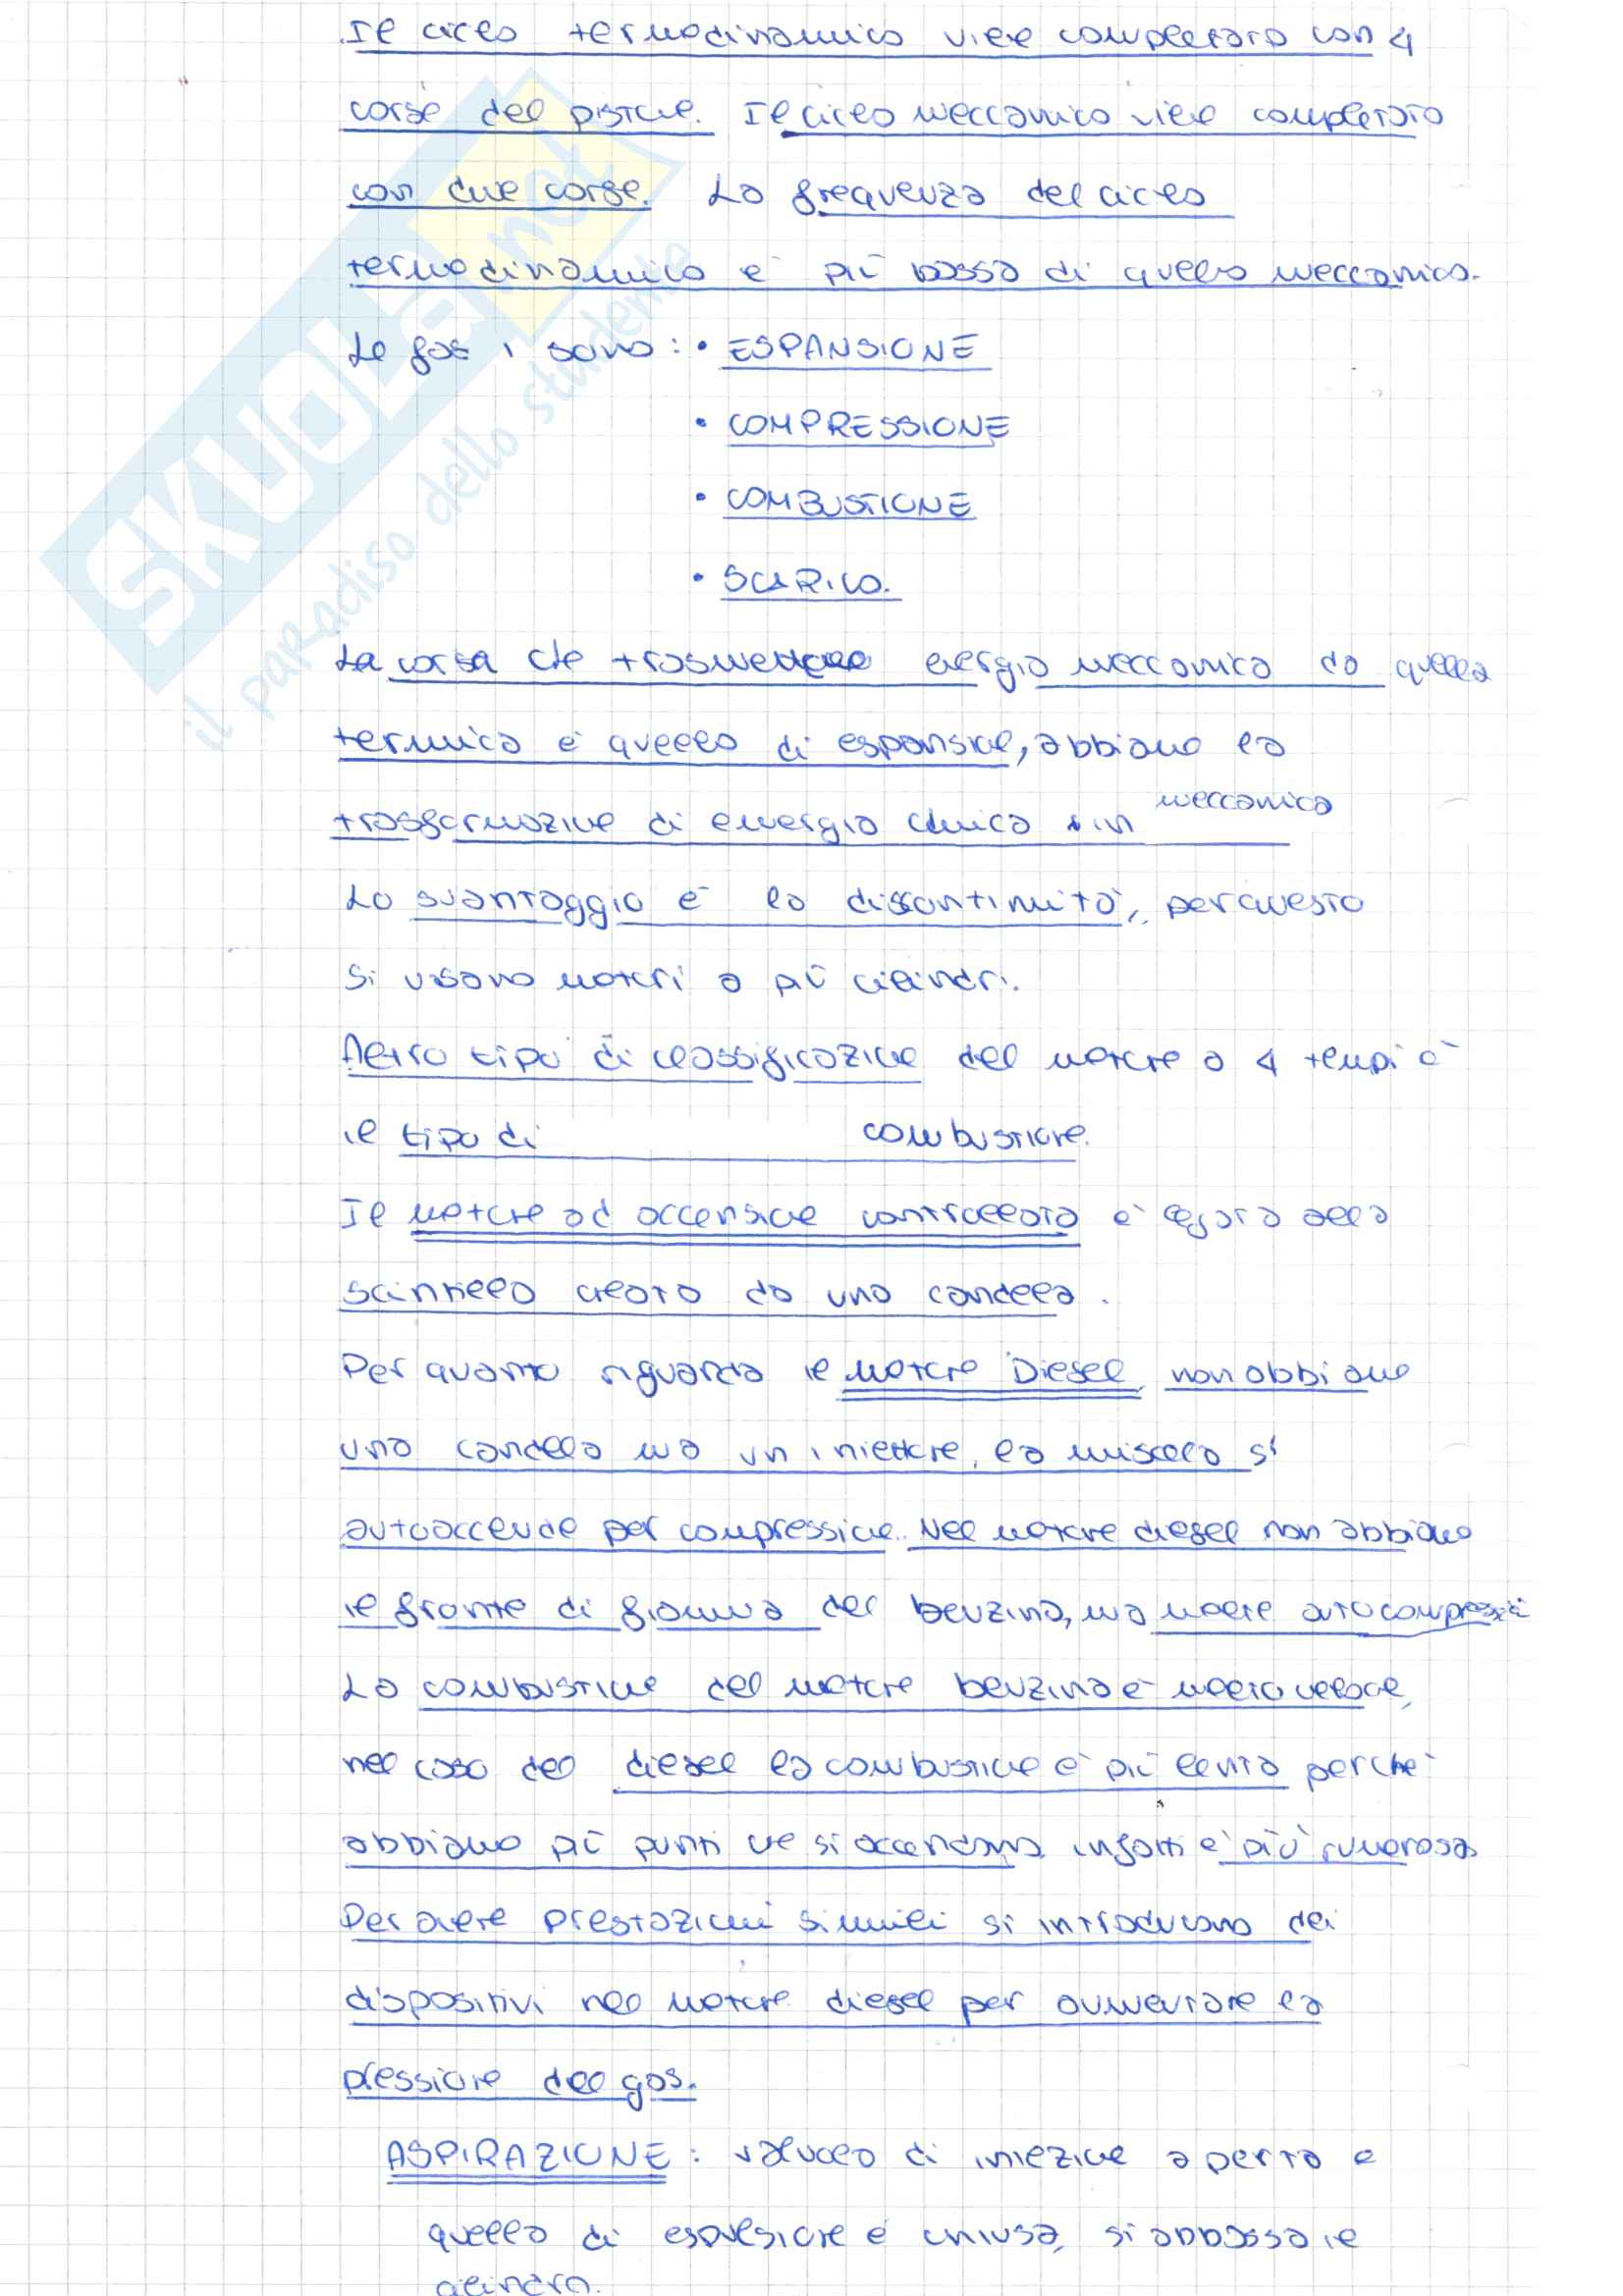 Il ciclo termodinamico viene completato con 4
corse del pistone. Il ciclo meccanico viene completato
con due corse. La frequenza del ciclo
termodinamico è più bassa di quella meccanico.
Le fasi sono: • ESPANSIONE
• COMPRESSIONE
• COMBUSTIONE
• SCARICO.
La corsa che trasmette energia meccanica da quella
termica è quella di espansione, abbiamo la
trasformazione di energia chimica in meccanica
Lo svantaggio è la discontinuità, per questo
si usano motori a più cilindri.
Altro tipo di classificazione del motore a 4 tempi è
il tipo di combustione.
Il motore ad accensione controllata è legato alla
scintilla creata da una candela.
Per quanto riguarda il motore Diesel, non abbiamo
una candela ma un iniettore, la miscela si
autoaccende per compressione. Nel motore diesel non abbiamo
il fronte di fiamma del benzina, ma molte autocompressioni
La combustione del motore benzina è molto veloce,
nel caso del diesel la combustione è più lenta perchè
abbiamo più punti che si accendono, infatti è più rumorosa
Per avere prestazioni simili si introducono dei
dispositivi nel motore diesel per aumentare la
pressione del gas.
ASPIRAZIONE: valvola di iniezione aperta e
quella di espulsione è chiusa, si abbassa il
cilindro.
SKUOLA.net
il paradiso dello studente